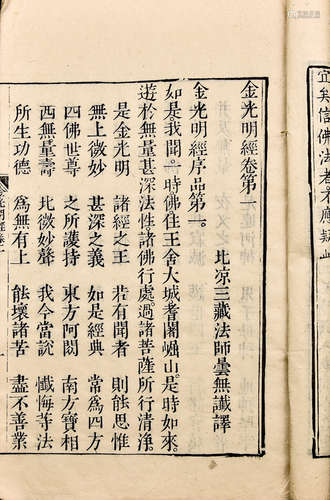 宜矣信佛法者不應疑此
金光明經卷第一
北凉三藏法師曇無讖譯
金光明經序品第一
如是我聞一時佛住王舍大城耆闍崛山是時如來
遊於無量甚深法性諸佛行處過諸菩薩所行清淨
是金光明 諸經之王 若有聞者 則能思惟
無上微妙 甚深之義 如是經典 常爲四方
四佛世尊 之所護持 東方阿閦 南方寶相
西無量壽 北微妙聲 我今當說 懺悔等法
所生功德 爲無有上 能壞諸苦 盡不善業